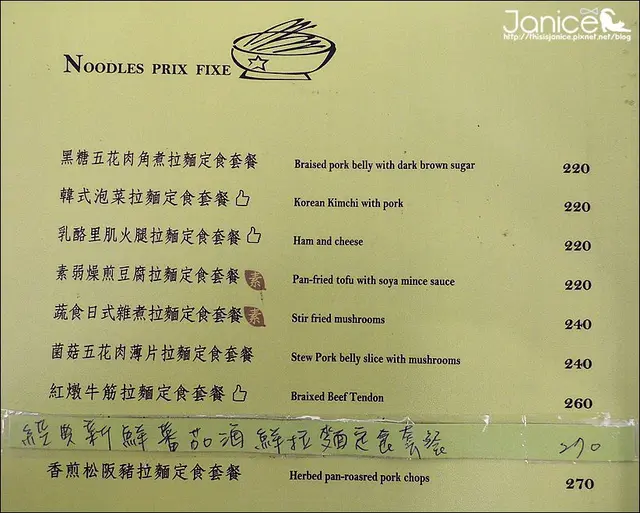 Janice
http://thisisjanice.pixnet.net/blog
NOODLES PRIX FIXE
黑糖五花肉角煮拉麵定食套餐 Braised pork belly with dark brown sugar 220
韓式泡菜拉麵定食套餐 Korean Kimchi with pork 220
乳酪里肌火腿拉麵定食套餐 Ham and cheese 220
素弱燥煎豆腐拉麵定食套餐 素 Pan-fried tofu with soya mince sauce 220
蔬食日式雜煮拉麵定食套餐 素 Stir fried mushrooms 240
菌菇五花肉薄片拉麵定食套餐 Stew Pork belly slice with mushrooms 240
紅燉牛筋拉麵定食套餐 Braixed Beef Tendon 260
經典新鮮蕃茄酒鮮拉麵定食套餐 270
香煎松阪豬拉麵定食套餐 Herbed pan-roasred pork chops 270